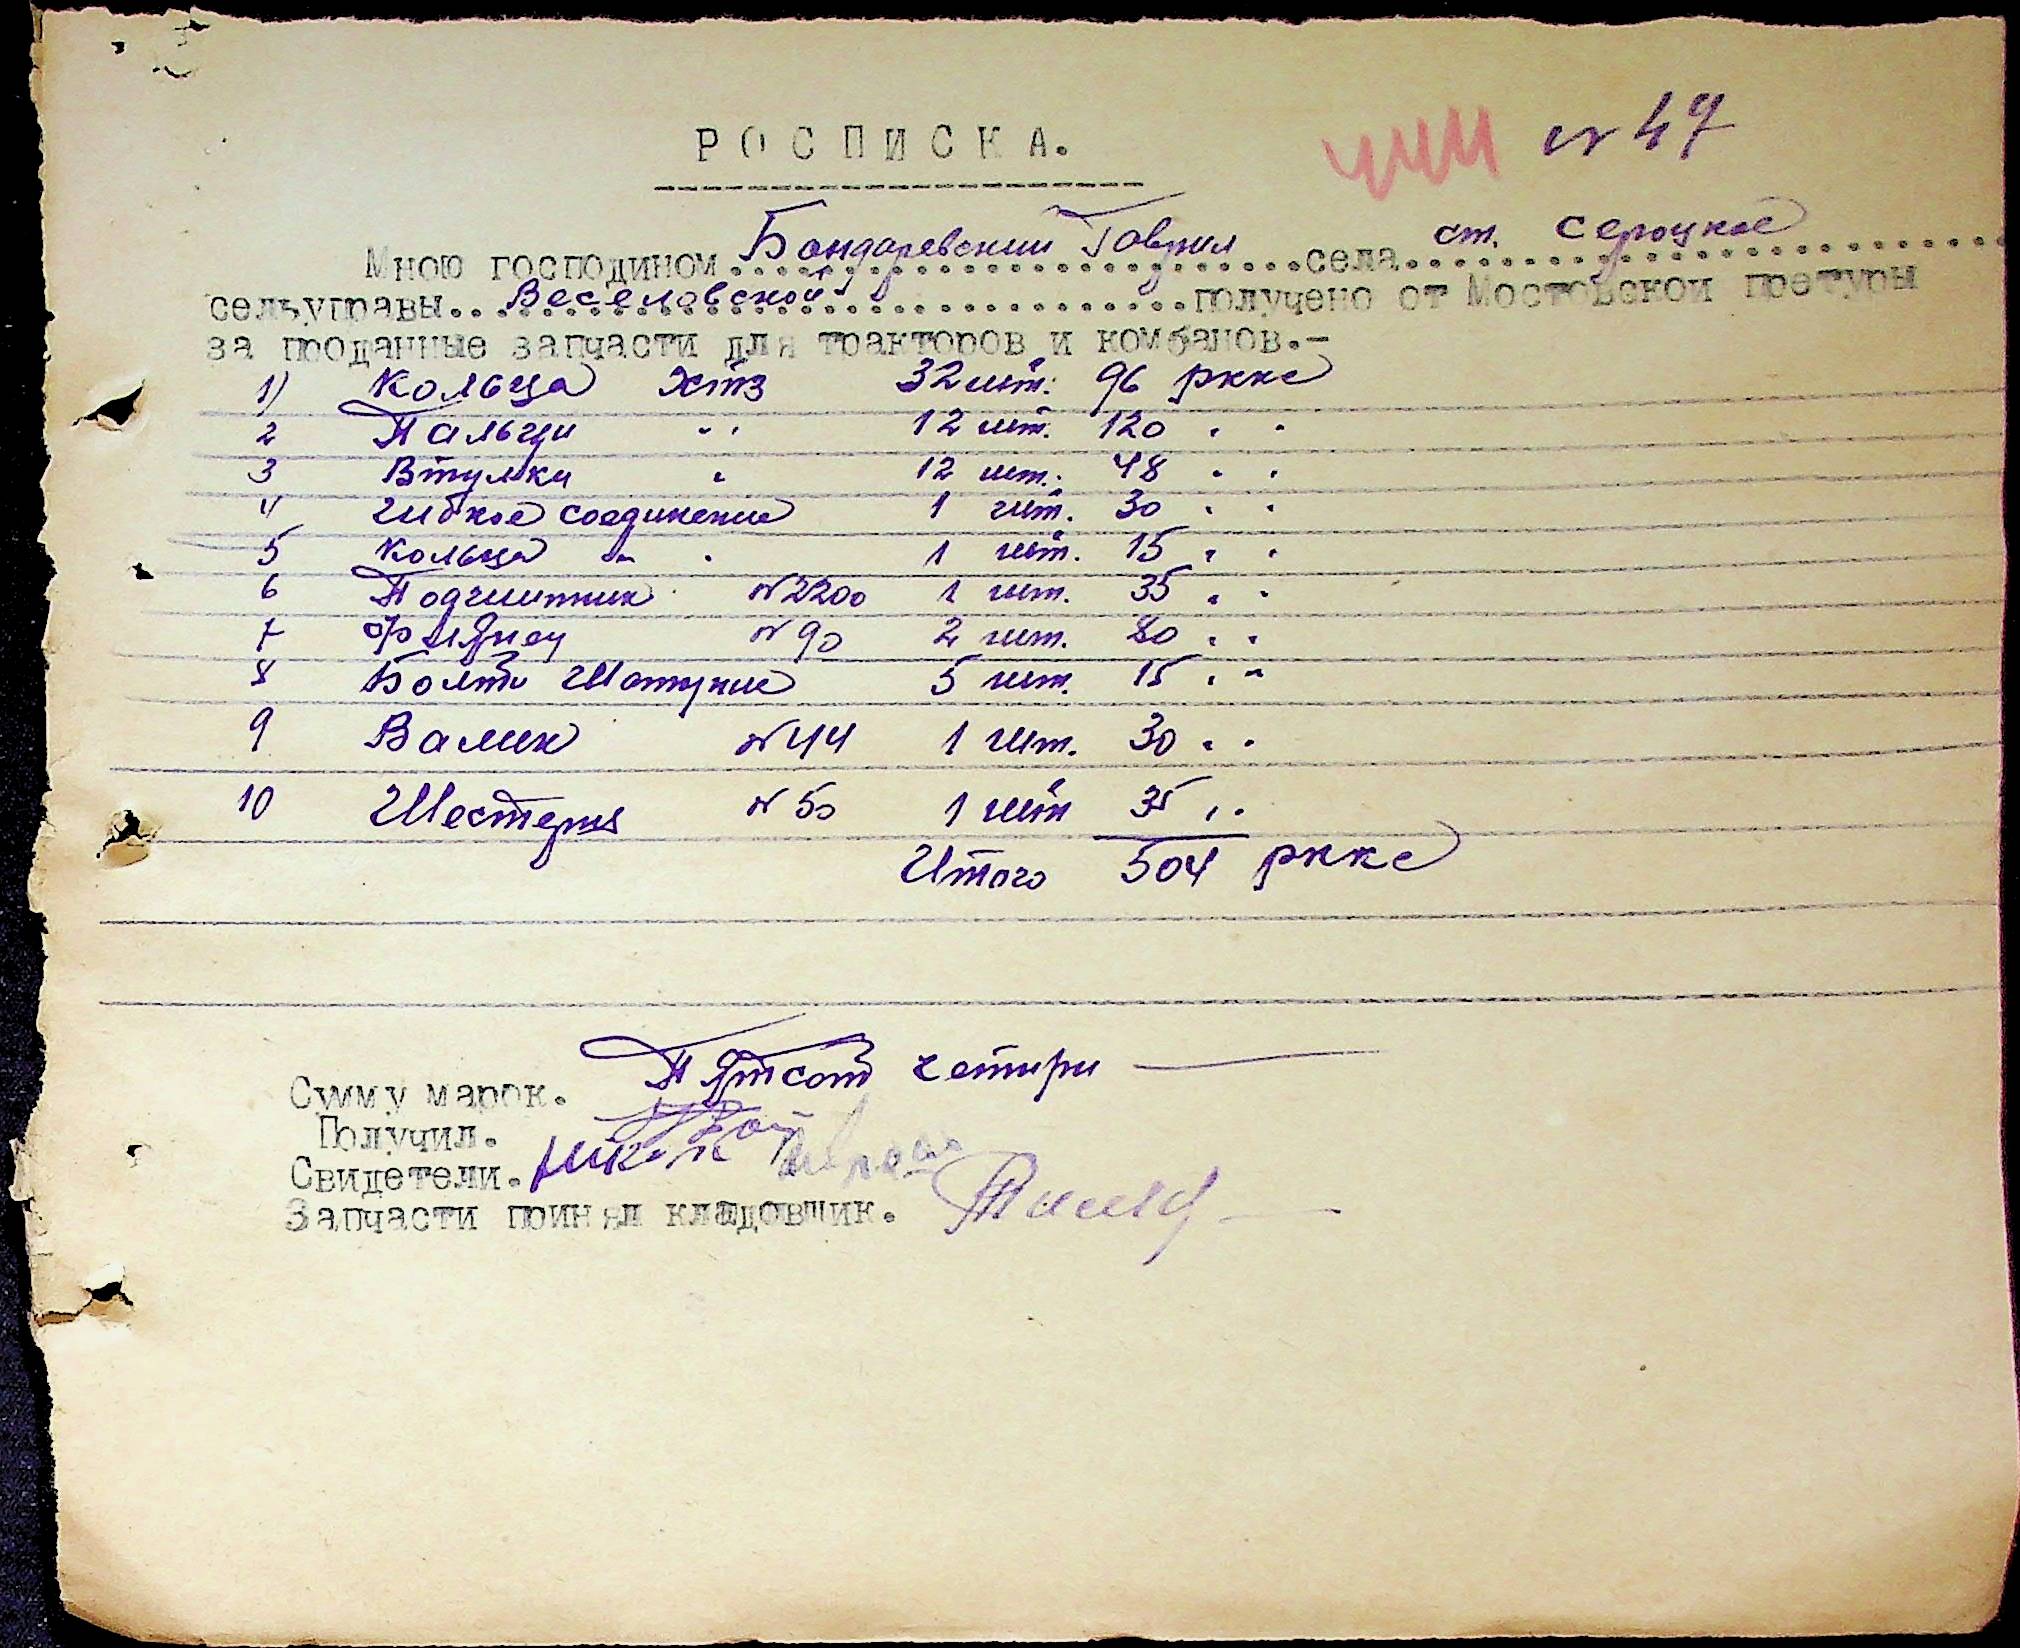 РОСПИСКА.
N 47
Мною господином Бондаревский Гаврил села ст. Сероцкое
сельуправы Веселовской получено от Мостовской претуры
за проданные запчасти для тракторов и комбанов.-
1) Кольца ХТЗ 32 шт. 96 ркке
2 Пальци " 12 шт. 120 " "
3 Втулки " 12 шт. 48 " "
4 Гибкое соединение 1 шт. 30 " "
5 Кольца " " 1 шт. 15 " "
6 Подшипник N 2200 1 шт. 35 " "
7 Флянец N 90 2 шт. 80 " "
8 Болти Шатуние 5 шт. 15 " "
9 Валик N 44 1 шт. 30 " "
10 Шестерня N 50 1 шт 35 " "
Итого 504 ркке
Сумму марок. Пятсот четири
Получил.
Свидетели.
Запчасти принял кладовщик.